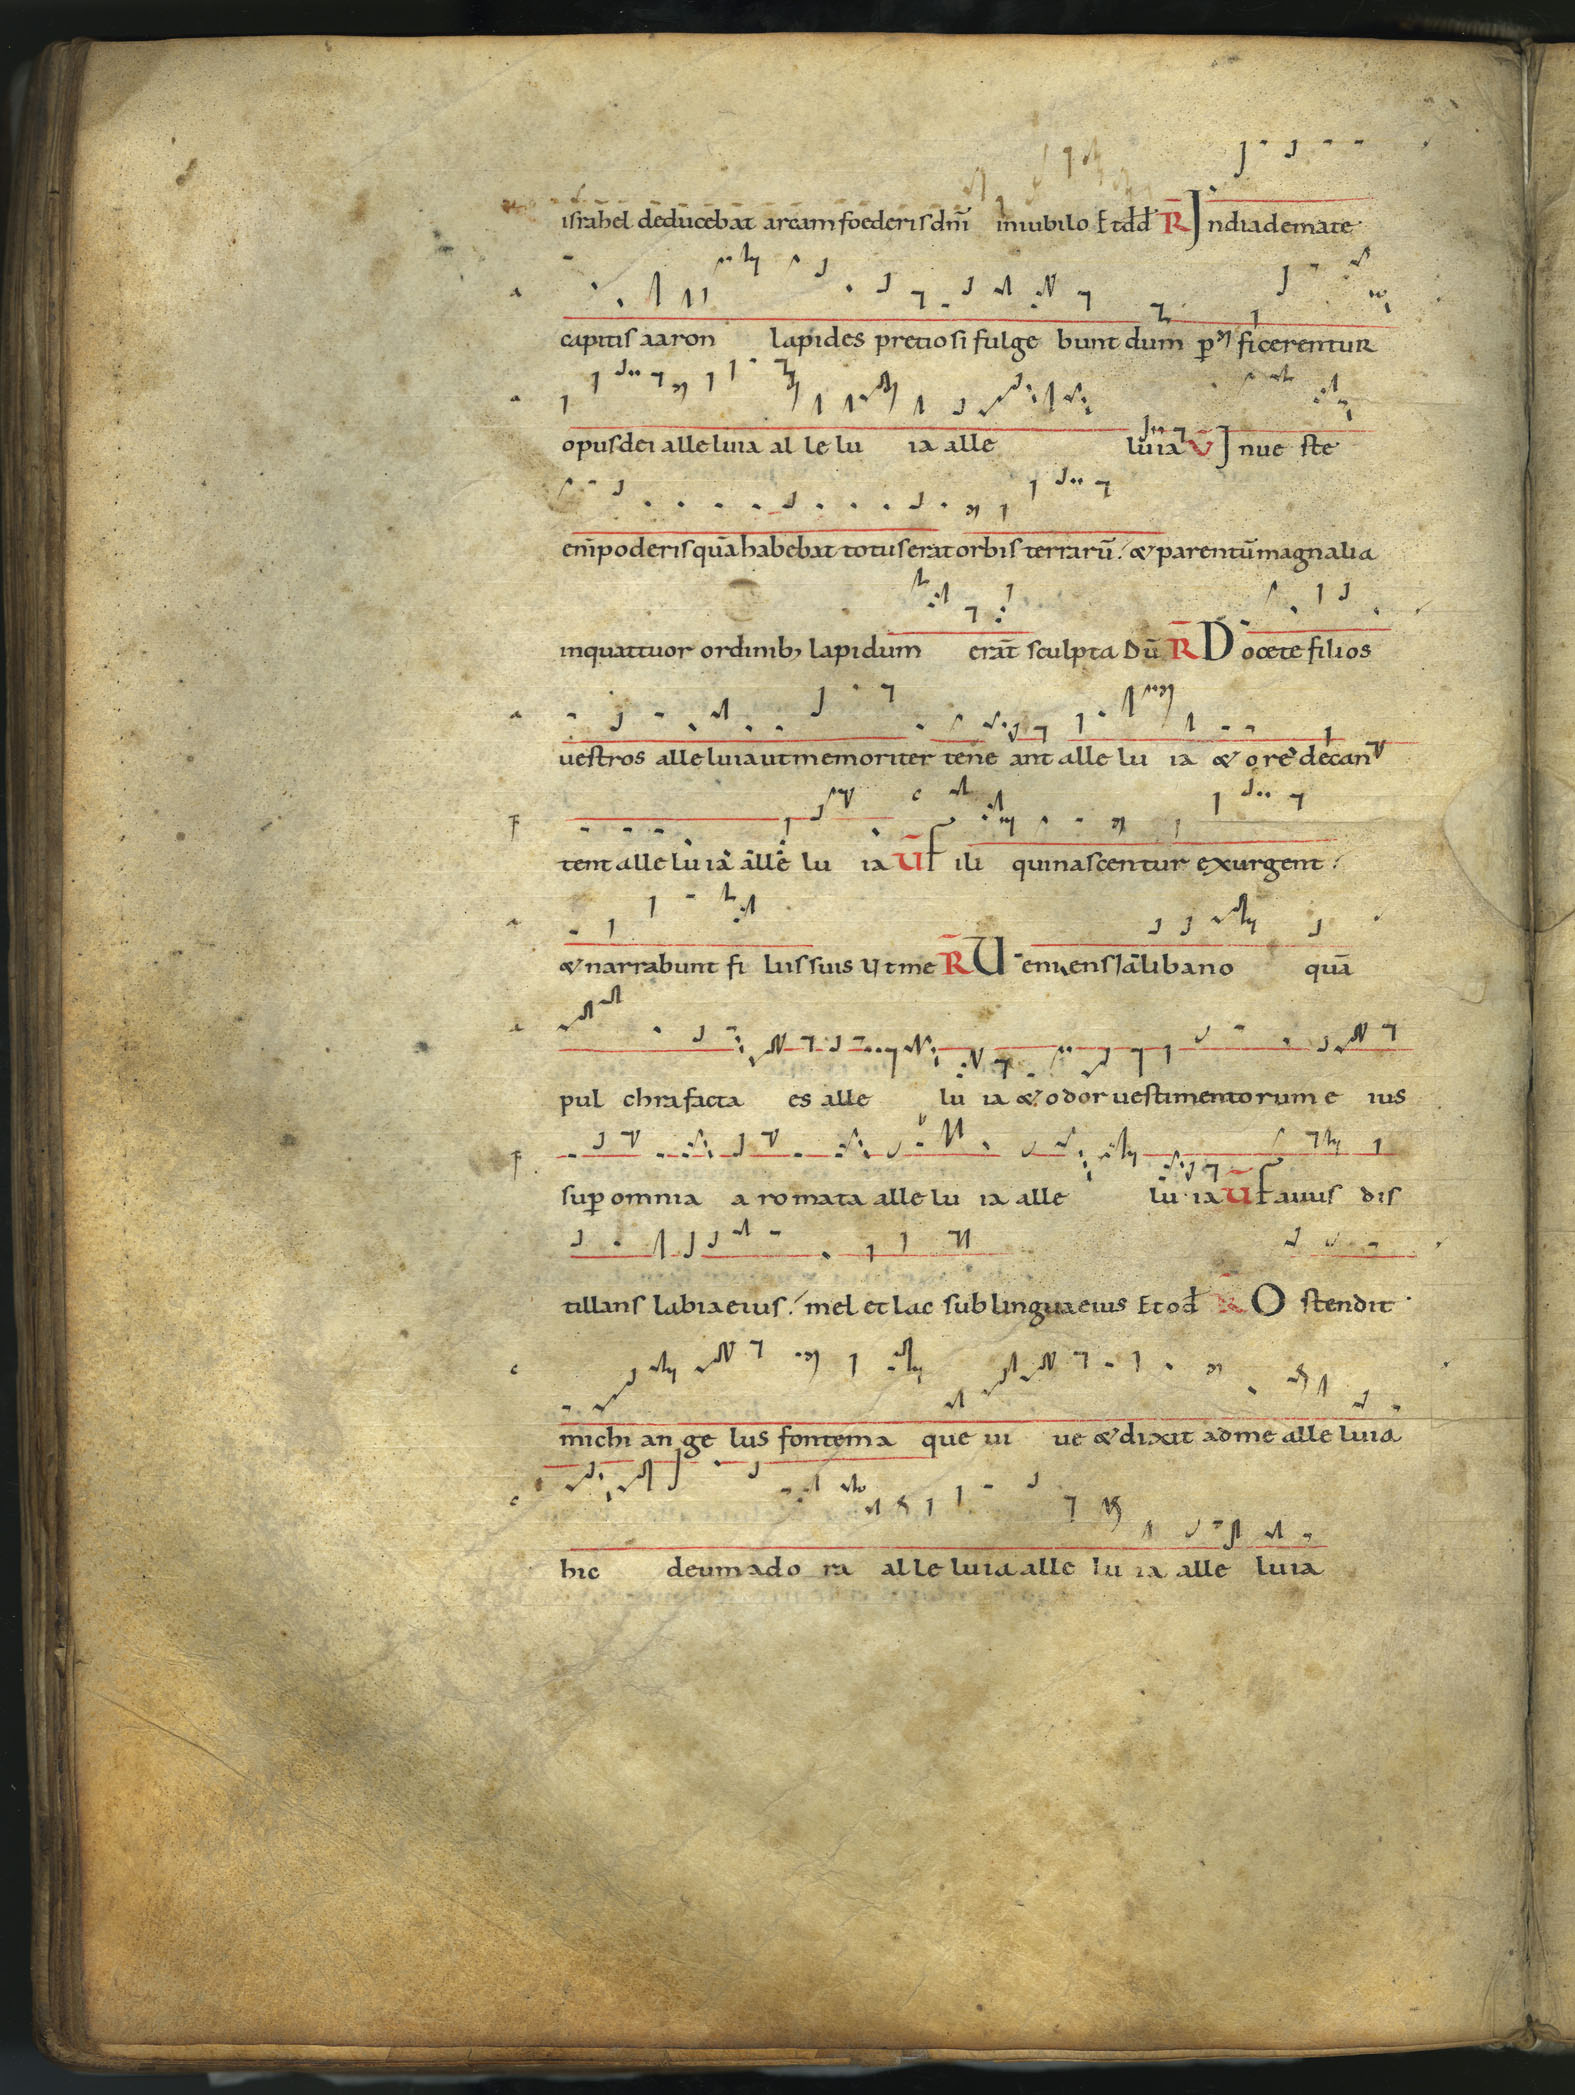 israhel deducebat arcam foederis dn̄i iniubilo Et dd̄ R̄ Indiademate
a capitis aaron lapides pretiosi fulge bunt dum p ficerentur
a opus dei alleluia al le lu ia alle luia V̄ Inue ste
eni͞poderis quā habebat totus erat orbis terrarū. & parentū magnalia
inquattuor ordinib; lapidum erat sculpta Dū R̄ Docete filios
a uestros alleluia ut memoriter tene ant alle lu ia & ore decan
F tent alle lu ia alle lu ia V̄ Fili qui nascentur exurgent.
a & narrabunt fi liis suis Ut me R̄ Ueniens a libano quā
a pul chra facta es alle lu ia & odor uestimentorum e ius
F sup̄ omnia a romata alle lu ia alle lu ia V̄ Fauus dis
tillans labia eius. mel et lac sub lingua eius Et od̄ R̄ O stendit
c michi an ge lus fontem a que ui ue & dixit ad me alle luia
c hic deum ado ra al le luia alle lu ia alle luia